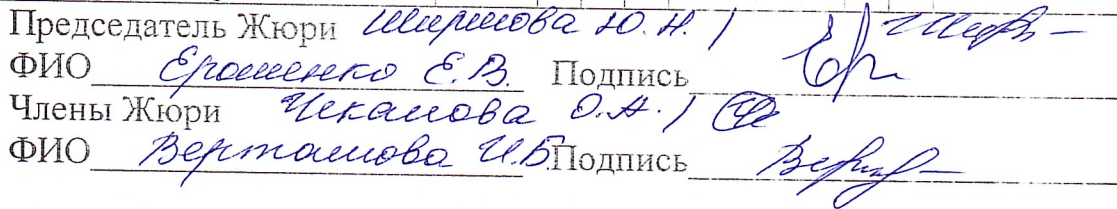 Председатель Жюри Ширшова Ю.Н. /
ФИО Ерошенко Е.В. Подпись
Члены Жюри Чекалова О.А. /
ФИО Верташова И.Б. Подпись